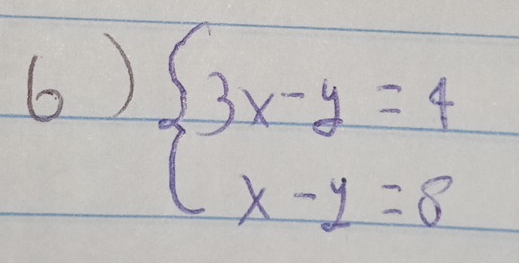 6) { 3x - y = 4
x - y = 8